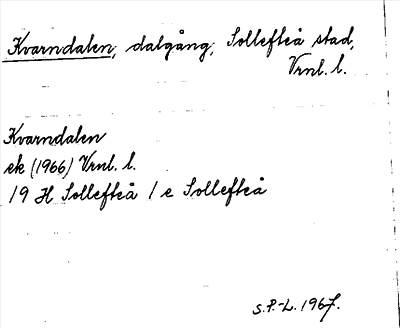 Kvarndalen, dalgång, Sollefteå stad,
Vrnl. l.
Kvarndalen
ek (1966) Vrnl. l.
19 H Sollefteå 1 e Sollefteå
S.P.-L. 1967.